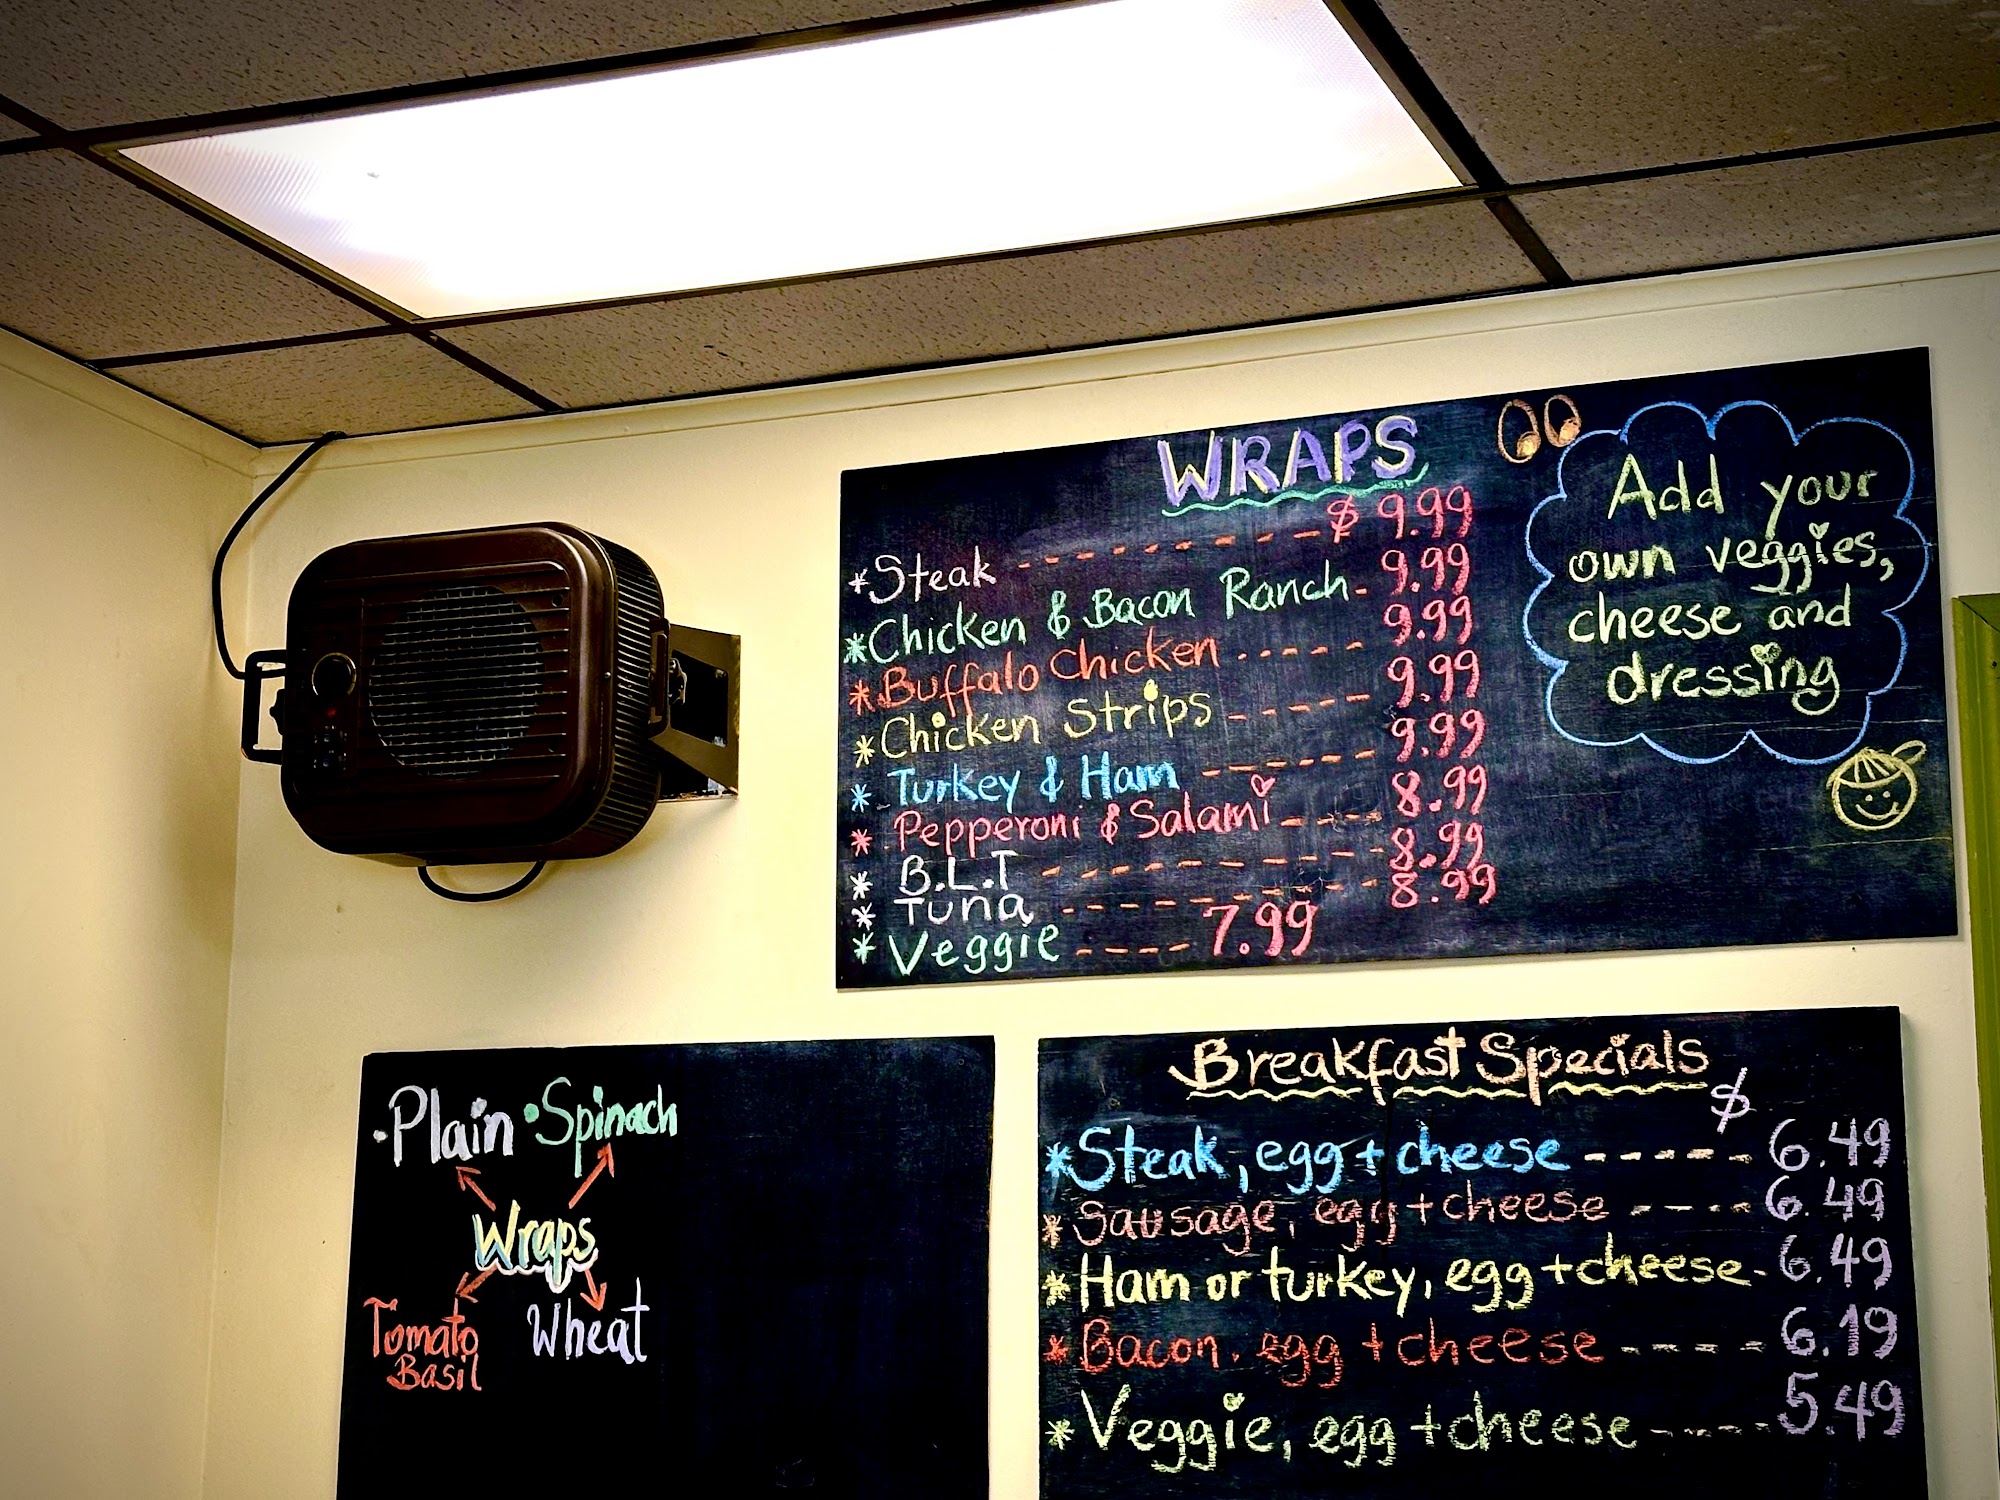 WRAPS
*Steak --------- $ 9.99
*Chicken & Bacon Ranch- 9.99
*Buffalo Chicken ----- 9.99
*Chicken Strips ----- 9.99
* Turkey & Ham ------ 9.99
* Pepperoni & Salami ---- 8.99
* B.L.T --------- 8.99
* Tuna --------- 8.99
* Veggie ---- 7.99
Add your
own veggies,
cheese and
dressing
•Plain •Spinach
Wraps
Tomato
Basil
Wheat
Breakfast Specials
$
*Steak, egg + cheese ----- 6.49
*Sausage, egg + cheese ---- 6.49
*Ham or turkey, egg + cheese- 6.49
*Bacon. egg + cheese ---- 6.19
*Veggie, egg + cheese ---- 5.49